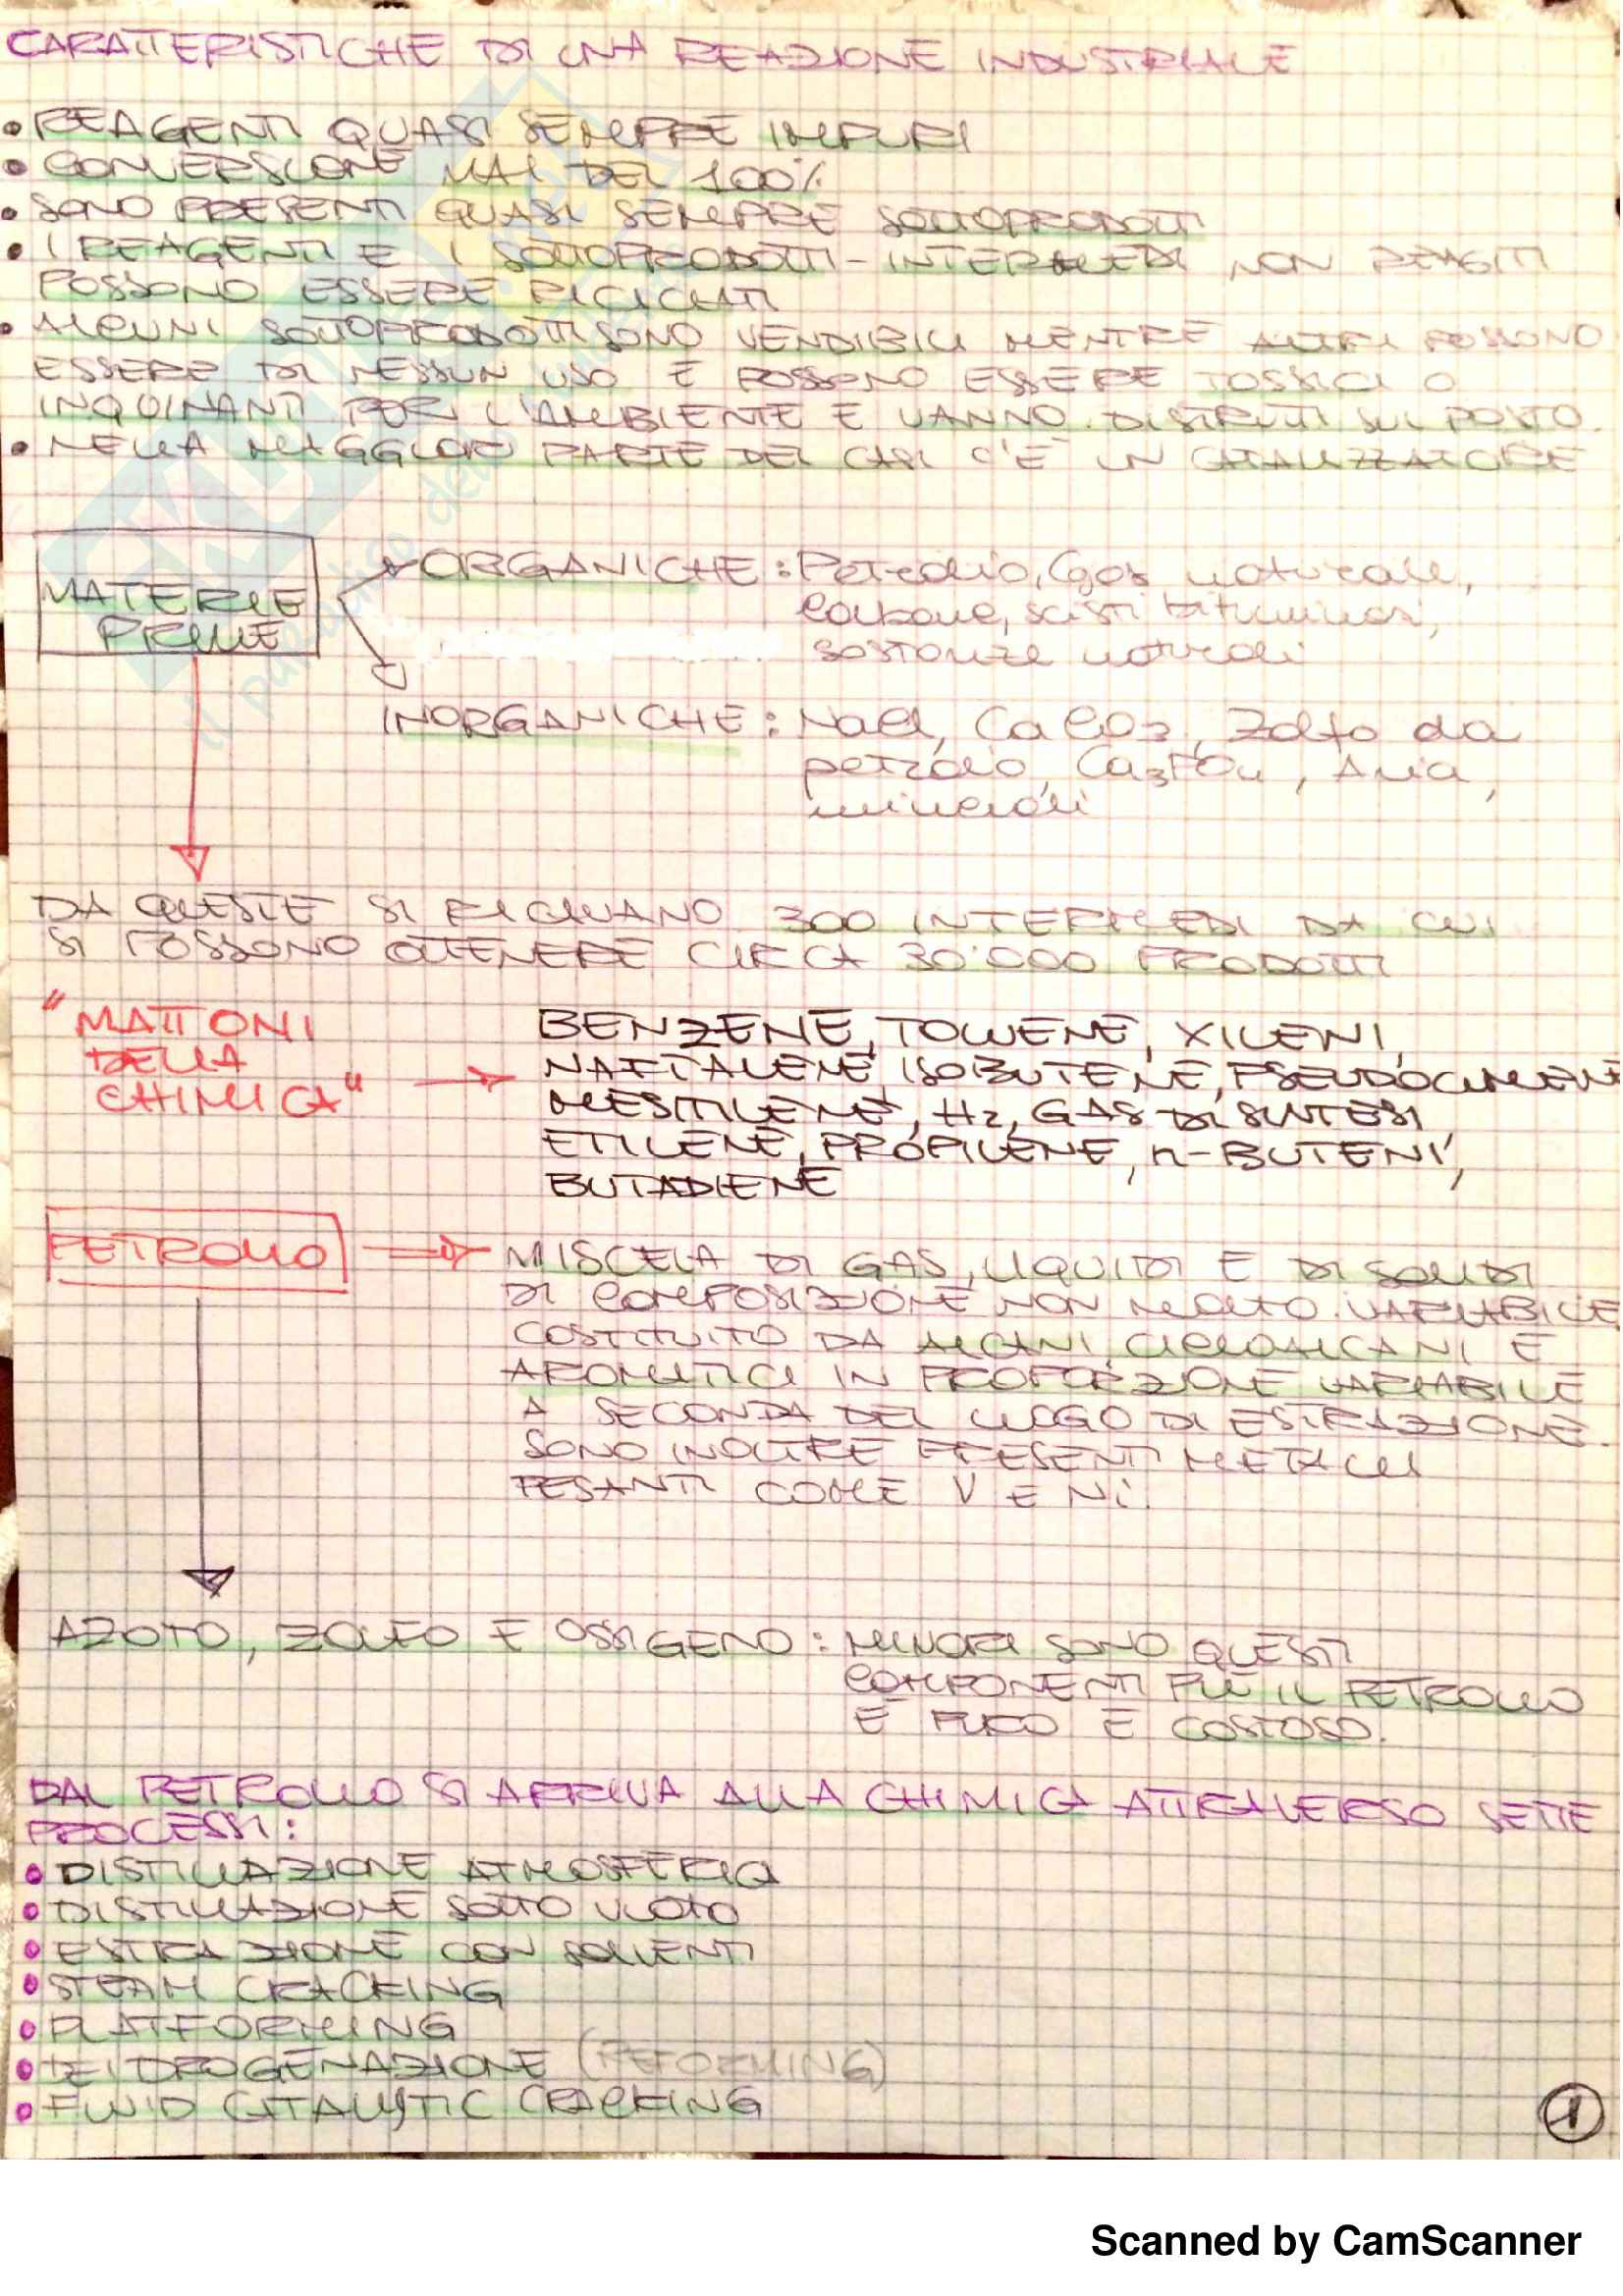 CARATTERISTICHE DI UNA REAZIONE INDUSTRIALE
• REAGENTI QUASI SEMPRE IMPURI
• CONVERSIONE MAI DEL 100%
• SONO PRESENTI QUASI SEMPRE SOTTOPRODOTTI
• I REAGENTI E I SOTTOPRODOTTI-INTERMEDI NON REAGITI
POSSONO ESSERE RICICLATI
• ALCUNI SOTTOPRODOTTI SONO VENDIBILI MENTRE ALTRI POSSONO
ESSERE DI NESSUN USO E POSSONO ESSERE TOSSICI O
INQUINANTI PER L'AMBIENTE E VANNO DISTRUTTI SUL POSTO.
• NELLA MAGGIOR PARTE DEI CASI C'È UN CATALIZZATORE
MATERIE
PRIME
ORGANICHE: Petrolio, Gas naturale,
carbone, scisti bituminosi,
sostanze naturali
INORGANICHE: NaCl, CaCO3, Zolfo da
petrolio, Ca3PO4, Aria,
minerali
DA QUESTE SI RICAVANO 300 INTERMEDI DA CUI
SI POSSONO OTTENERE CIRCA 30'000 PRODOTTI
"MATTONI
DELLA
CHIMICA" → BENZENE, TOLUENE, XILENI,
NAFTALENE, ISOBUTENE, PSEUDOCUMENE
MESITILENE, H2, GAS DI SINTESI,
ETILENE, PROPILENE, n-BUTENI,
BUTADIENE
PETROLIO → MISCELA DI GAS, LIQUIDI E DI SOLIDI
DI COMPOSIZIONE NON MOLTO VARIABILE
COSTITUITO DA ALCANI, CICLOALCANI E
AROMATICI IN PROPORZIONE VARIABILE
A SECONDA DEL LUOGO DI ESTRAZIONE.
SONO INOLTRE PRESENTI METALLI
PESANTI COME V E Ni.
AZOTO, ZOLFO E OSSIGENO: MINORI SONO QUESTI
COMPONENTI PIÙ IL PETROLIO
È PURO E COSTOSO.
DAL PETROLIO SI ARRIVA ALLA CHIMICA ATTRAVERSO SETTE
PROCESSI:
• DISTILLAZIONE ATMOSFERICA
• DISTILLAZIONE SOTTO VUOTO
• ESTRAZIONE CON SOLVENTI
• STEAM CRACKING
• PLATFORMING
• DEIDROGENAZIONE (REFORMING)
• FLUID CATALYTIC CRACKING
1
Scanned by CamScanner